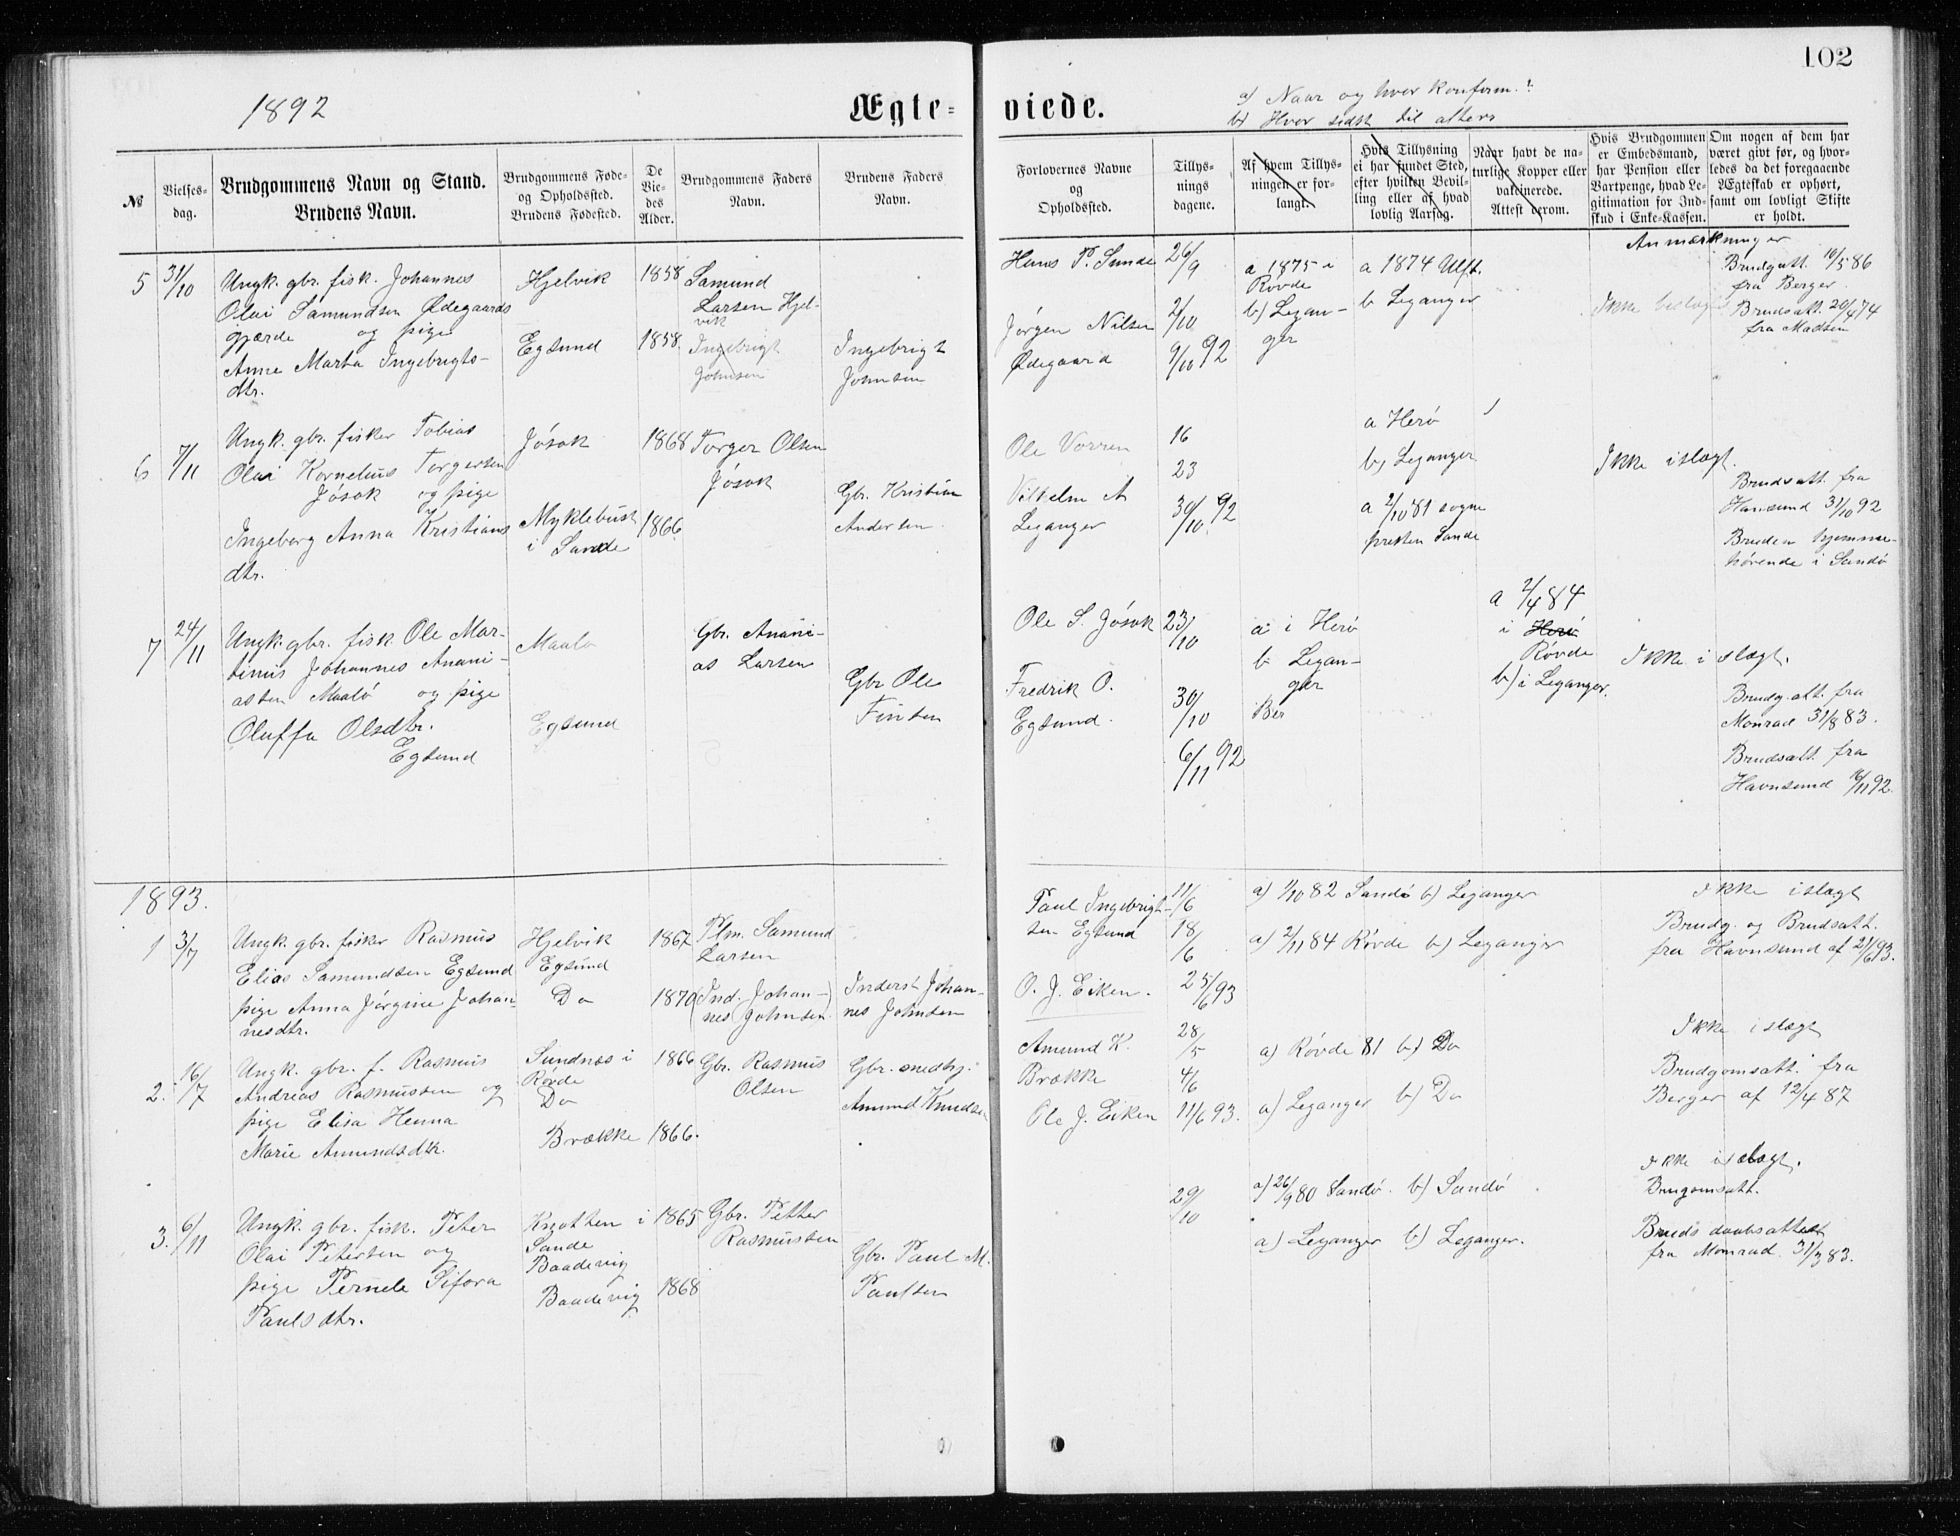 102
1892
Ægte=
viede.
a) Naar og hver konfirm.?
b) Hvor sidst til alters
№
Vielses-
dag.
Brudgommens Navn og Stand.
Brudens Navn.
Brudgommens Føde-
og Opholdssted.
Brudens Fødested.
De
Vie-
des
Alder.
Brudgommens Faders
Navn.
Brudens Faders
Navn.
Forlovernes Navne
og
Opholdssted.
Tillys-
nings
dagene.
Af hvem Tillys-
ningen er for-
langt.
Hvis Tillysning
ei har fundet Sted,
efter hvilken Bevil-
ling eller af hvad
lovlig Aarsag.
Naar havt de na-
turlige Kopper eller
vakcinerede.
Attest derom.
Hvis Brudgommen
er Embedsmand,
har Pension eller
Vartpenge, hvad Le-
gitimation for Ind-
skud i Enke-Kassen.
Om nogen af dem har
været givt før, og hvor-
ledes da det foregaaende
Ægteskab er ophørt,
samt om lovligt Skifte
er holdt.
Anmærkninger
5
31/10
Ungk. gbr. fisk. Johannes
Olai Samundsen Ødegaards
gjærde og pige
Anne Marta Ingebrigts-
dtr.
Hjelvik
Egsund
1858.
1858.
Samund
Larsen Hjel-
vik
Ingebrigt
Johnsen
Ingebrigt
Johnsen
Hans P. Sunde
Jørgen Nilsen
Ødegaard
26/9
2/10
9/10 92
a 1875 i
Røvde
b) Legan-
ger
a 1874 Ulft.
b Leganger
Ikke beslægt
Brudgatt. 10/5 86
fra Berger.
Brudsatt. 20/4 74
fra Madsen
6
7/11
Ungk. gbr. fisker Tobias
Olai Kornelius Torgersen
Jøsok og pige
Ingeborg Anna Kristians
dtr.
Jøsok
Myklebust
i Sande
1868
1866
Torger Olsen
Jøsok
Gbr. Kristian
Andersen
Ole Vorren
Vilhelm A
Leganger
16
23
30/10 92
a Herø
b) Leganger
a 2/10 81 sogne
presten Sande
Ikke islægt.
Brudsatt. fra
Havnsund 31/10 92
Bruden hjemme-
hørende i Sandø
7
24/11
Ungk. gbr. fisk Ole Mar-
tinus Johannes Anani-
assen Maalø og pige
Oluffa Olsdtr.
Egsund
Maalø
Egsund
Gbr. Anani-
as Larsen
Gbr Ole
Finsen
Ole S. Jøsok
Fredrik O.
Egsund.
23/10
30/10
6/11 92
a i Herø
b Legan-
ger
Ber
a 2/4 84
i Herø
Røvde
b) i Leganger.
Ikke i slægt.
Brudg. att. fra
Monrad 31/8 83.
Brudsatt. fra
Havnsund 16/11 92.
1893.
1
3/7
Ungk. gbr. fisker Rasmus
Elias Samundsen Egsund
pige Anna Jørgine Johan
nesdtr.
Hjelvik
Egsund
Do
1867
1870
Plm. Samund
Larsen
(Ind. Johan-)
nes Johnsen
Inderst Johan-
nes Johnsen
Paul Ingebrigt-
sen Egsund
O. J. Eiken.
11/6
18/6
25/6 93
a) 1/10 82 Sandø b) Leganger
a) 2/11 84 Røvde b) Leganger
Ikke islægt
Brudg. og Brudsatt.
fra Havnsund af 21/6 93.
2.
16/7
Ungk. gbr. f. Rasmus
Andreas Rasmussen og
pige Elisa Henna
Marie Amundsdtr.
Sundnæs i
Røvde
Do
Brække
1866
1866.
Gbr. Rasmus
Olsen
Gbr. snedkj.
Amund Knudsen
Amund K.
Brække
Ole J. Eiken
28/5
4/6
11/6 93.
a) Røvde 81 b) Do
a) Leganger b) Do
Ikke islægt
Brudgomsatt. fra
Berger af 12/4 87
3.
6/11
Ungk. gbr. fisk. Peter
Olai Petersen og
pige Pernele Sifora
Paulsdtr.
Knotten i
Sande
Baadevig
Baadevig
1865
1868
Gbr. Petter
Rasmussen
Gbr. Paul M.
Paulsen
29/10
a) 26/9 80 Sandø. b) Sandø
a) Leganger b) Leganger.
Ikke islægt.
Brugomsatt.
Bruds daabsattest
fra Monrad. 31/3 83.